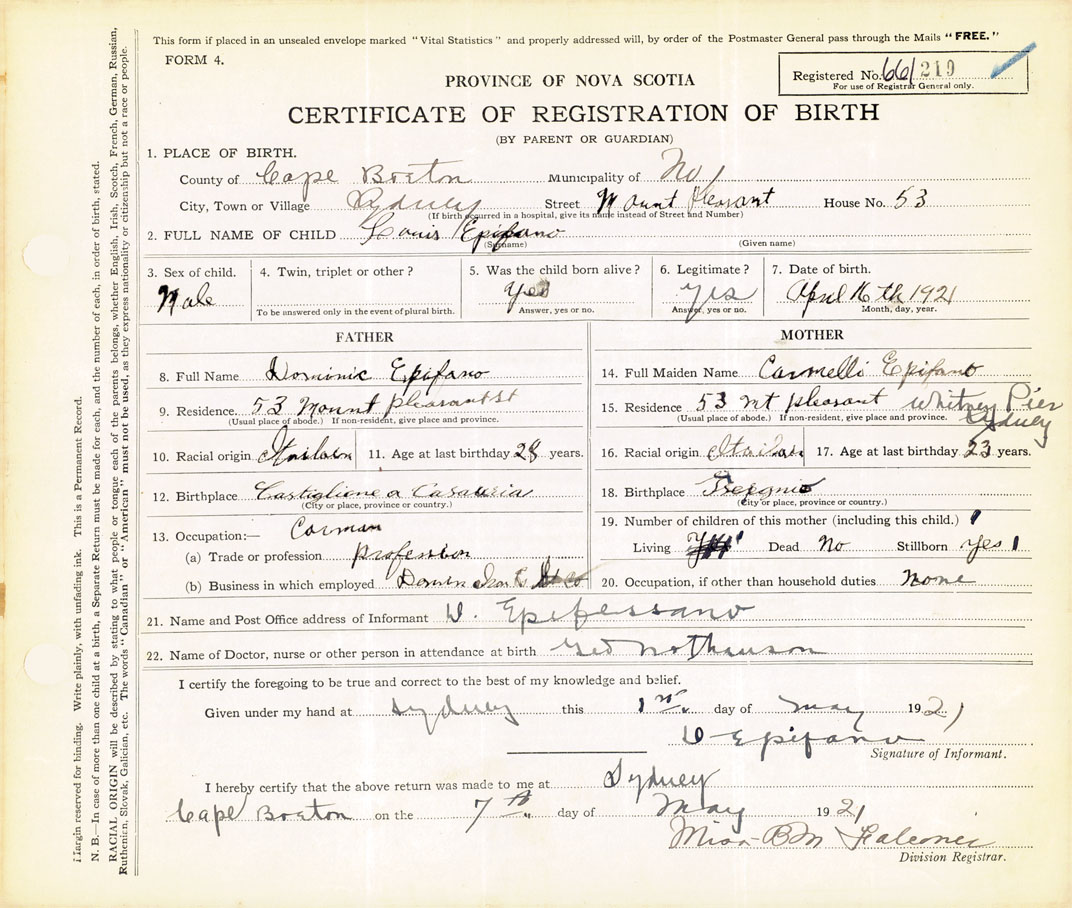 This form if placed in an unsealed envelope marked "Vital Statistics" and properly addressed will, by order of the Postmaster General pass through the Mails "FREE."
FORM 4.
Registered No. 661 219
For use of Registrar General only.
PROVINCE OF NOVA SCOTIA
CERTIFICATE OF REGISTRATION OF BIRTH
(BY PARENT OR GUARDIAN)
1. PLACE OF BIRTH.
County of Cape Breton Municipality of No
City, Town or Village Sydney Street Mount Pleasant House No. 53
(If birth occurred in a hospital, give its name instead of Street and Number)
2. FULL NAME OF CHILD Louis Epifano
(Surname) (Given name)
3. Sex of child. 4. Twin, triplet or other? 5. Was the child born alive? 6. Legitimate? 7. Date of birth.
Male Yes yes April 16th 1921
To be answered only in the event of plural birth. Answer, yes or no. Answer, yes or no. Month, day, year.
FATHER MOTHER
8. Full Name Dominic Epifano
9. Residence. 53 Mount pleasant st
(Usual place of abode.) If non-resident, give place and province.
10. Racial origin 11. Age at last birthday 28 years.
12. Birthplace Castiglione a Casauria
(City or place, province or country.)
13. Occupation:— Carman
(a) Trade or profession profession
(b) Business in which employed
14. Full Maiden Name Carmelli Epifano
15. Residence 53 Mt pleasant Whitney Pier
Sydney
(Usual place of abode.) If non-resident, give place and province.
16. Racial origin 17. Age at last birthday 23 years.
18. Birthplace
(City or place, province or country.)
19. Number of children of this mother (including this child.) 1
Living Dead No Stillborn Yes 1
20. Occupation, if other than household duties None
21. Name and Post Office address of Informant D. Epifessano
22. Name of Doctor, nurse or other person in attendance at birth
I certify the foregoing to be true and correct to the best of my knowledge and belief.
Given under my hand at Sydney this 1st. day of May 1921
D Epifano
Signature of Informant.
I hereby certify that the above return was made to me at Sydney
Cape Breton on the 7th day of May 1921
Miss B M Falconer
Division Registrar.
Margin reserved for binding. Write plainly, with unfading ink. This is a Permanent Record.
N. B.—In case of more than one child at a birth, a Separate Return must be made for each, and the number of each, in order of birth, stated.
RACIAL ORIGIN will be described by stating to what people or tongue each of the parents belongs, whether English, Irish, Scotch, French, German, Russian,
Ruthenien, Slovak, Galician, etc. The words "Canadian" or "American" must not be used, as they express nationality or citizenship but not a race or people.